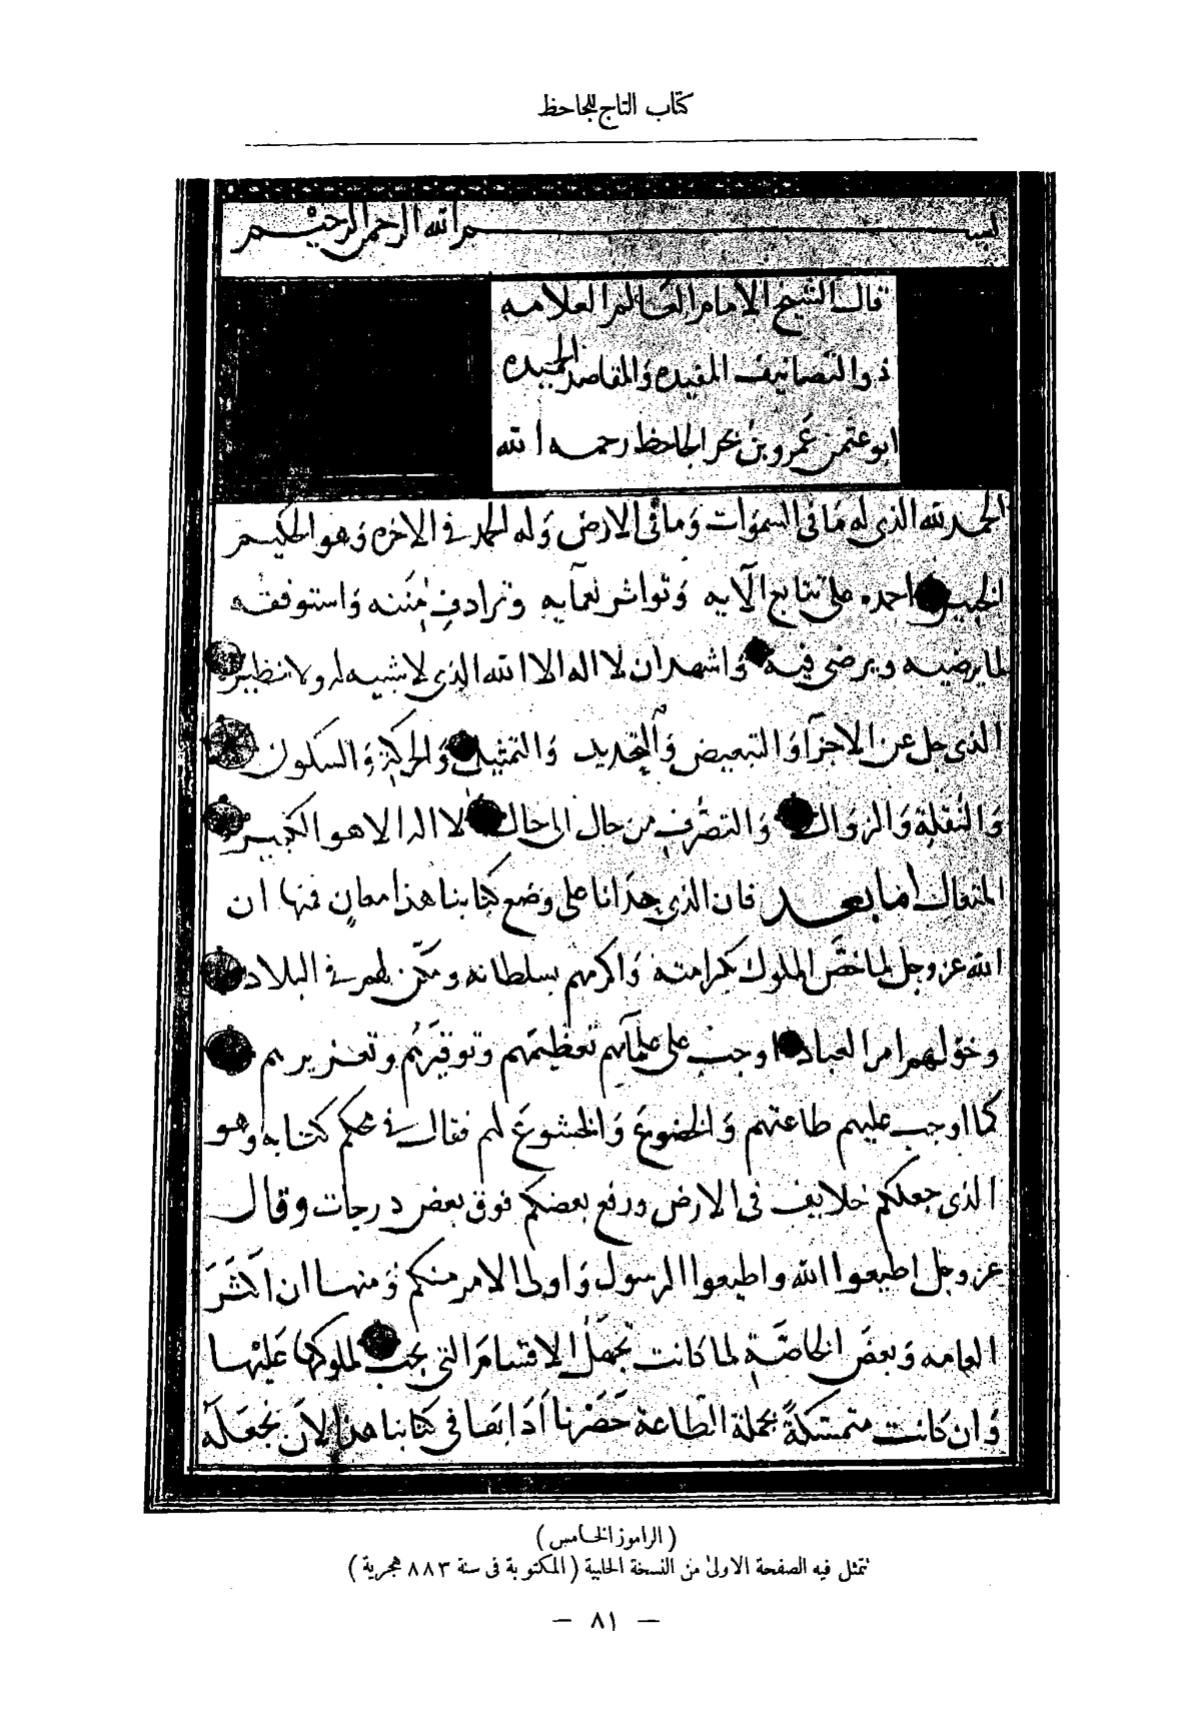 كتاب التاج للجاحظ
بسم الله الرحمن الرحيم
قال الشيخ الامام العالم العلامه
ذو التصانيف المفيده والمقاصد الحميده
ابو عثمن عمرو بن بحر الجاحظ رحمه الله
الحمد لله الذى له مَا فى السموَات وَما فى الارض وَله الحمد فى الاخره وَهو الحكيم
الخبير احمده على تتابع الآيه وَتواتر نعمآيه وترادف مِننه وَاستوفقه
لما يرضيه ويرضى فيه وَاشهد ان لا اله الا الله الذى لا شبيه له ولا نظير
الذى جل عن الاجزآ وَالتبعيض وَالتحديد وَالتمثيل وَالحركة وَالسكون
وَالنقلة وَالزوال وَالتصرف من حال الى حال لا اله الا هو الكبير
المتعال اما بعد فان الذي حدانا على وضع كتابنا هذا معانٍ منها ان
الله عز وجل لما خصَّ الملوك بكرامته وَاكرمهم بسلطانه ومكّن لهم فى البلاد
وخوّلهم امر العباد اوجب على علمآيهم تعظيمَهم وتوقيرَهُم وتعزيرهم
كما اوجب عليهم طاعتهم وَالخضوعَ وَالخشوعَ لهم فقال فى محكم كتابه وهو
الذى جعلكم خلايف فى الارض ورفع بعضكم فوق بعض درجات وقال
عز وجل اطيعوا الله واطيعوا الرسول وَاولى الامر منكم وَمنها ان اكثَرَ
العامه وَبعضَ الخاصَّةِ لما كانت تجهَلُ الاقسَامَ التى يجب لملوكها عَليْها
وَان كانت متمسّكةً بجملة الطاعة حَصَرنا آدَابَها فى كتابنا هذا لان نجعَلَهُ
(الراموز الخامس)
تتمثل فيه الصفحة الاولىٰ من النسخة الحلبية (المكتوبة فى سنة ٨٨٣ هجرية)
— ٨١ —